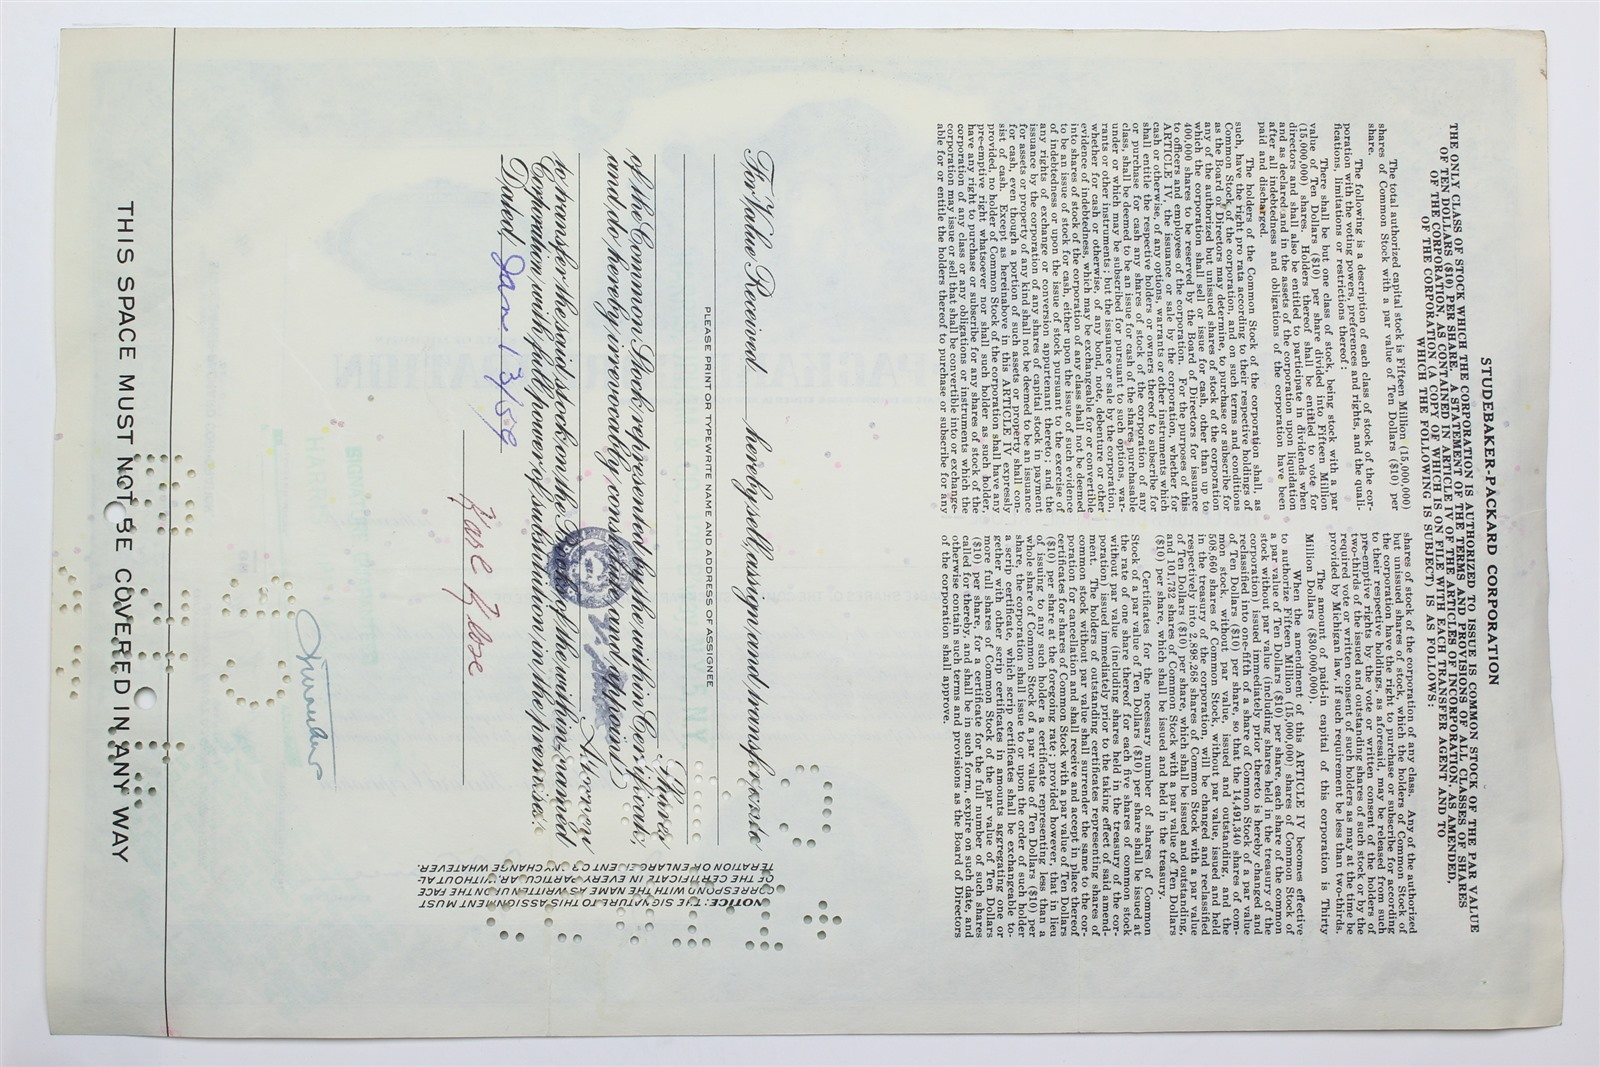 STUDEBAKER-PACKARD CORPORATION
THE ONLY CLASS OF STOCK WHICH THE CORPORATION IS AUTHORIZED TO ISSUE IS COMMON STOCK OF THE PAR VALUE
OF TEN DOLLARS ($10) PER SHARE. A STATEMENT OF THE TERMS AND PROVISIONS OF ALL CLASSES OF SHARES
OF THE CORPORATION, AS CONTAINED IN ARTICLE IV OF THE ARTICLES OF INCORPORATION, AS AMENDED,
OF THE CORPORATION (A COPY OF WHICH IS ON FILE WITH EACH TRANSFER AGENT AND TO
WHICH THE FOLLOWING IS SUBJECT) IS AS FOLLOWS:
The total authorized capital stock is Fifteen Million (15,000,000)
shares of Common Stock with a par value of Ten Dollars ($10) per
share.
The following is a description of each class of stock of the cor-
poration with the voting powers, preferences and rights, and the quali-
fications, limitations or restrictions thereof:
There shall be but one class of stock, being stock with a par
value of Ten Dollars ($10) per share divided into Fifteen Million
(15,000,000) shares. Holders thereof shall be entitled to vote for
directors and shall also be entitled to participate in dividends when
and as declared and in the assets of the corporation upon liquidation
after all indebtedness and obligations of the corporation have been
paid and discharged.
The holders of the Common Stock of the corporation shall, as
such, have the right pro rata according to their respective holdings of
Common Stock of the corporation, and on such terms and conditions
as the Board of Directors may determine, to purchase or subscribe for
any of the authorized but unissued shares of stock of the corporation
which the corporation shall sell or issue for cash, other than up to
400,000 shares to be reserved by the Board of Directors for issuance
to officers and employees of the corporation. For the purposes of this
ARTICLE IV, the issuance or sale by the corporation, whether for
cash or otherwise, of any options, warrants or other instruments which
shall entitle the respective holders or owners thereof to subscribe for
or purchase for cash any shares of stock of the corporation of any
class, shall be deemed to be an issue for cash of the shares purchasable
under or which may be subscribed for pursuant to such options, war-
rants or other instruments; but the issuance or sale by the corporation,
whether for cash or otherwise, of any bond, note, debenture or other
evidence of indebtedness, which may be exchangeable for or convertible
into shares of stock of the corporation of any class shall not be deemed
to be an issue of stock for cash, either upon the issue of such evidence
of indebtedness or upon the issue of stock pursuant to the exercise of
any rights of exchange or conversion appurtenant thereto; and the
issuance by the corporation of any shares of capital stock in payment
for assets or property of any kind shall not be deemed to be an issuance
for cash, even though a portion of such assets or property shall con-
sist of cash. Except as hereinabove in this ARTICLE IV expressly
provided, no holder of Common Stock of the corporation shall have any
pre-emptive right whatsoever nor shall such holder, as such holder,
have any right to purchase or subscribe for any shares of stock of the
corporation of any class or any obligations or instruments which the
corporation may issue or sell that shall be convertible into or exchange-
able for or entitle the holders thereof to purchase or subscribe for any
shares of stock of the corporation of any class. Any of the authorized
but unissued shares of stock, which the holders of Common Stock of
the corporation have the right to purchase or subscribe for according
to their respective holdings, as aforesaid, may be released from such
pre-emptive rights by the vote or written consent of the holders of
two-thirds of the issued and outstanding shares of such stock or by the
required vote or written consent of such holders as may at the time be
provided by Michigan law, if such requirement be less than two-thirds.
The amount of paid-in capital of this corporation is Thirty
Million Dollars ($30,000,000).
When the amendment of this ARTICLE IV becomes effective
to authorize Fifteen Million (15,000,000) shares of Common Stock of
a par value of Ten Dollars ($10) per share, each share of the common
stock without par value (including shares held in the treasury of the
corporation) issued immediately prior thereto is hereby changed and
reclassified into one-fifth of a share of Common Stock of a par value
of Ten Dollars ($10) per share, so that the 14,491,340 shares of com-
mon stock, without par value, issued and outstanding, and the
508,660 shares of Common Stock, without par value, issued and held
in the treasury of the corporation, will be changed and reclassified
respectively into 2,898,268 shares of Common Stock with a par value
of Ten Dollars ($10) per share, which shall be issued and outstanding,
and 101,732 shares of Common Stock with a par value of Ten Dollars
($10) per share, which shall be issued and held in the treasury.
Certificates for the necessary number of shares of Common
Stock of a par value of Ten Dollars ($10) per share shall be issued at
the rate of one share thereof for each five shares of common stock
without par value (including shares held in the treasury of the cor-
poration) issued immediately prior to the taking effect of said amend-
ment. The holders of outstanding certificates representing shares of
common stock without par value shall surrender the same to the cor-
poration for cancellation and shall receive and accept in place thereof
certificates for shares of Common Stock with a par value of Ten Dollars
($10) per share at the foregoing rate; provided however, that in lieu
of issuing to any such holder a certificate representing less than a
whole share of Common Stock of a par value of Ten Dollars ($10) per
share, the corporation shall issue to or upon the order of such holder
a scrip certificate, which scrip certificates shall be exchangeable to-
gether with other scrip certificates in amounts aggregating one or
more full shares of Common Stock of the par value of Ten Dollars
($10) per share, for a certificate for the full number of such shares
called for thereby, and shall be in such form, expire on such date, and
otherwise contain such terms and provisions as the Board of Directors
of the corporation shall approve.
For Value Received hereby sell, assign and transfer unto
PLEASE PRINT OR TYPEWRITE NAME AND ADDRESS OF ASSIGNEE
Shares
of the Common Stock represented by the within Certificate,
and do hereby irrevocably constitute and appoint
Attorney
to transfer the said stock on the Books of the within named
Corporation with full power of substitution in the premises.
Dated, Jan. 13/59
NOTICE: THE SIGNATURE TO THIS ASSIGNMENT MUST
CORRESPOND WITH THE NAME AS WRITTEN UPON THE FACE
OF THE CERTIFICATE IN EVERY PARTICULAR, WITHOUT AL-
TERATION OR ENLARGEMENT OR ANY CHANGE WHATEVER.
THIS SPACE MUST NOT BE COVERED IN ANY WAY